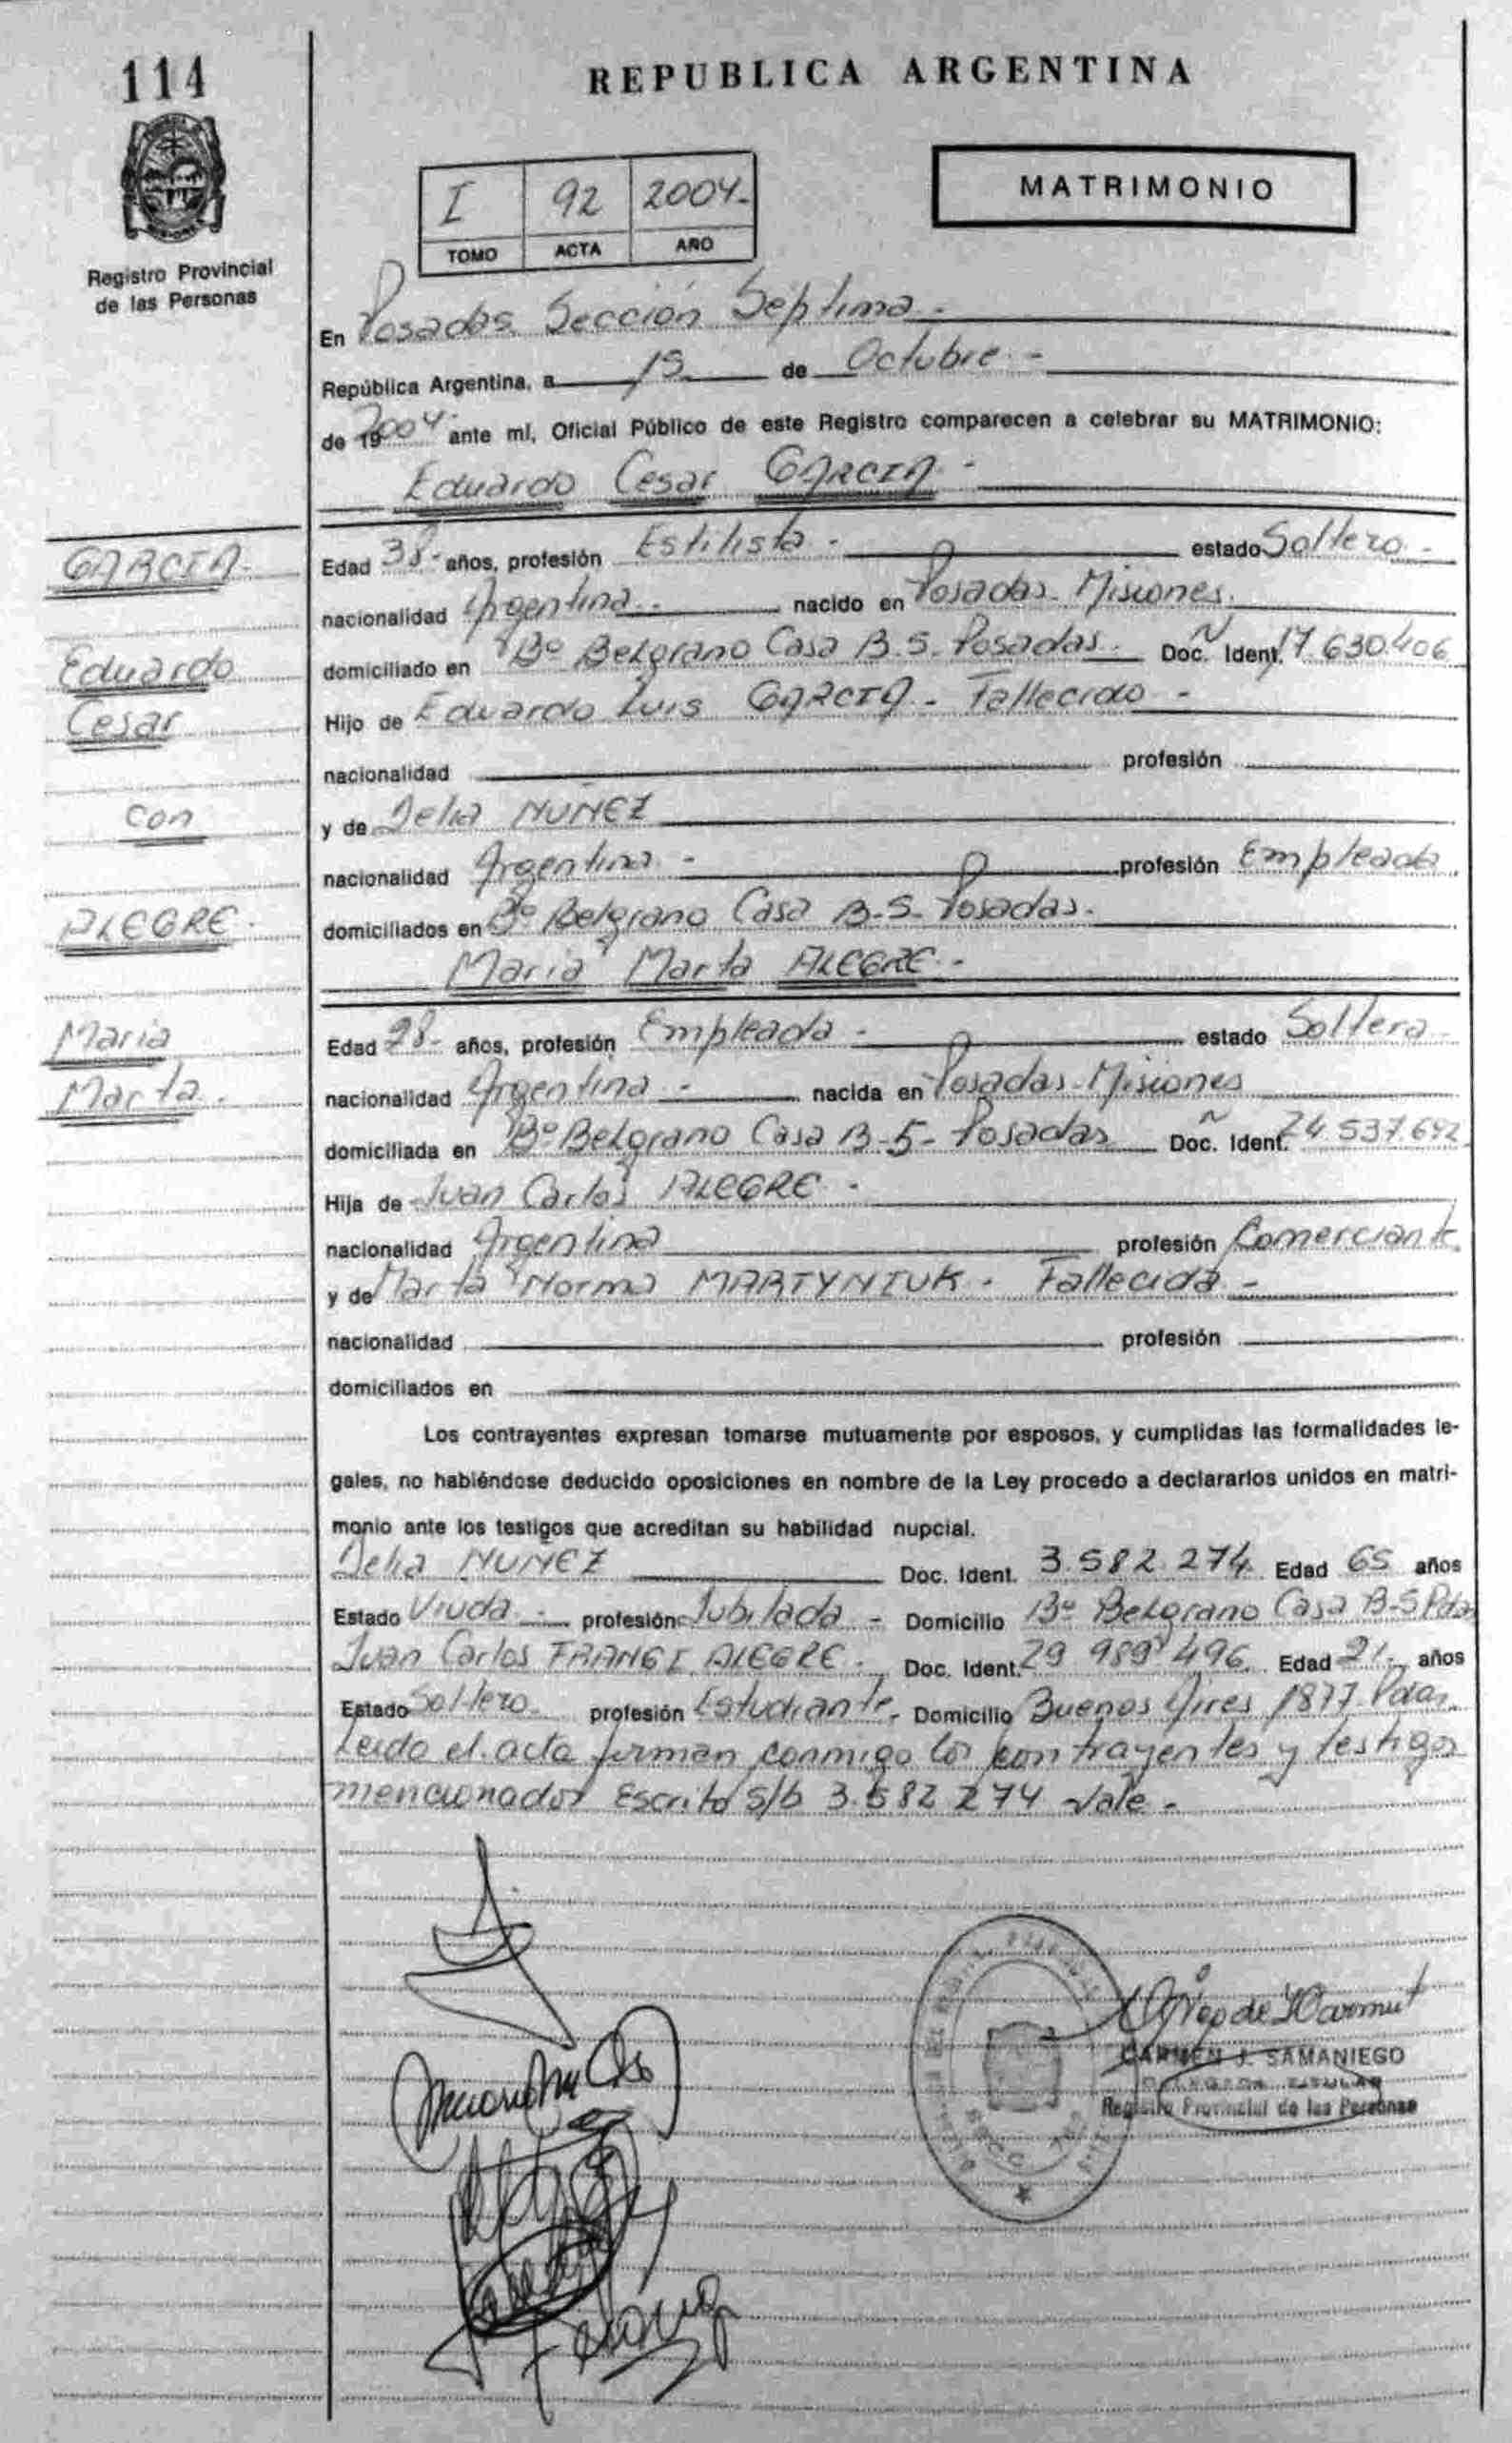 114
REPUBLICA ARGENTINA
MATRIMONIO
I 92 2004.-
TOMO ACTA AÑO
Registro Provincial
de las Personas
En Posadas Sección Séptima.-
República Argentina, a 15 de Octubre.-
de 19 2004 ante mí, Oficial Público de este Registro comparecen a celebrar su MATRIMONIO:
Eduardo Cesar GARCIA.-
GARCIA.-
Eduardo
Cesar
con
ALEGRE.
Maria
Marta.
Edad 38- años, profesión Estilista.- estado Soltero.-
nacionalidad Argentina.- nacido en Posadas- Misiones.
domiciliado en Bº Belgrano Casa B.5. Posadas. Doc. Ident. 17.630.406
Hijo de Eduardo Luis GARCIA.- Fallecido.-
nacionalidad profesión
y de Delia NUÑEZ
nacionalidad Argentina.- profesión Empleada
domiciliados en Bº Belgrano Casa B-5- Posadas.
Maria Marta ALEGRE.-
Edad 28- años, profesión Empleada.- estado Soltera.-
nacionalidad Argentina.- nacida en Posadas-Misiones
domiciliada en Bº Belgrano Casa B-5- Posadas Doc. Ident. 24.537.692
Hija de Juan Carlos ALEGRE.
nacionalidad Argentina profesión Comerciante
y de Marta Norma MARTYNIUK. Fallecida.-
nacionalidad profesión
domiciliados en
Los contrayentes expresan tomarse mutuamente por esposos, y cumplidas las formalidades le-
gales, no habiéndose deducido oposiciones en nombre de la Ley procedo a declararlos unidos en matri-
monio ante los testigos que acreditan su habilidad nupcial.
Delia NUÑEZ Doc. Ident. 3.582.274 Edad 65 años
Estado Viuda.- profesión Jubilada.- Domicilio Bº Belgrano Casa B-5 Pdas
Juan Carlos FRANGI ALEGRE. Doc. Ident. 29.989.496. Edad 21.- años
Estado Soltero. profesión Estudiante. Domicilio Buenos Aires 1877. Pdas.
Leido el acta firman conmigo los contrayentes y testigos
mencionados Escrito s/b 3.582.274 Vale.-
CARMEN J. SAMANIEGO
DELEGADA TITULAR
Registro Provincial de las Personas